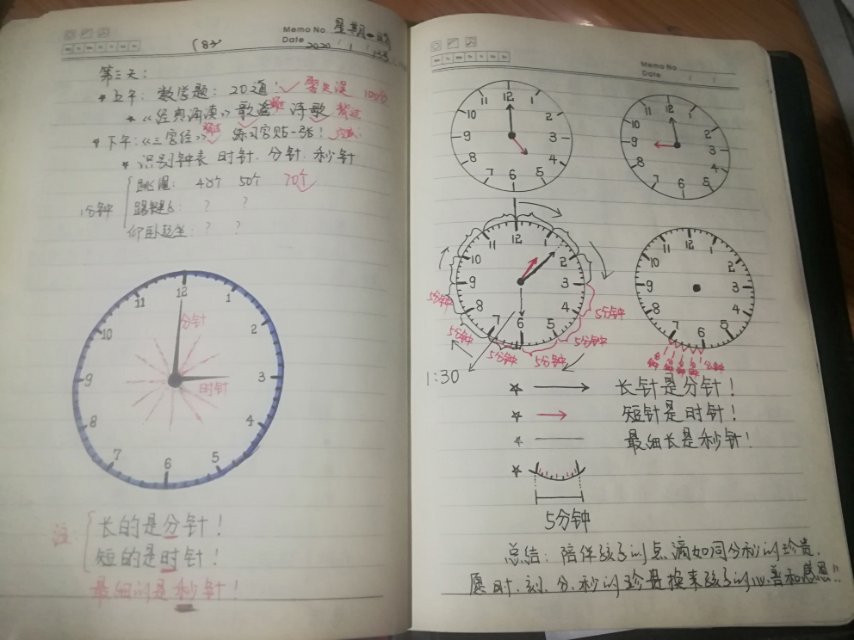 Memo No 星期一
Date 2020 1
第三天：
上午：数学题：20道：
《经典诵读》 诗歌
下午：《三字经》 练习字贴一张！
识别钟表 时针．分针．秒针
1分钟
跳绳： 48个 50个 70个
踢毽子： ? ?
仰卧起坐： ? ?
12
11 1
10 2
分针
9 3
时针
8 4
7 5
6
注：
长的是分针！
短的是时针！
最细的是秒针！
Memo No
Date
12
11 1
10 2
9 3
8 4
7 5
6
12
11 1
10 2
9 3
8 4
7 5
6
12
11 1
10 2
9 3
8 4
7 5
6
5分钟
5分钟
5分钟
5分钟
5分钟
5分钟
1:30
12
11 1
10 2
9 3
8 4
7 5
6
长针是分针！
短针是时针！
最细长是秒针！
5分钟
总结：陪伴孩子的点滴如同分秒的珍贵．
愿时．刻．分．秒的珍贵换来孩子的 善和感恩!!